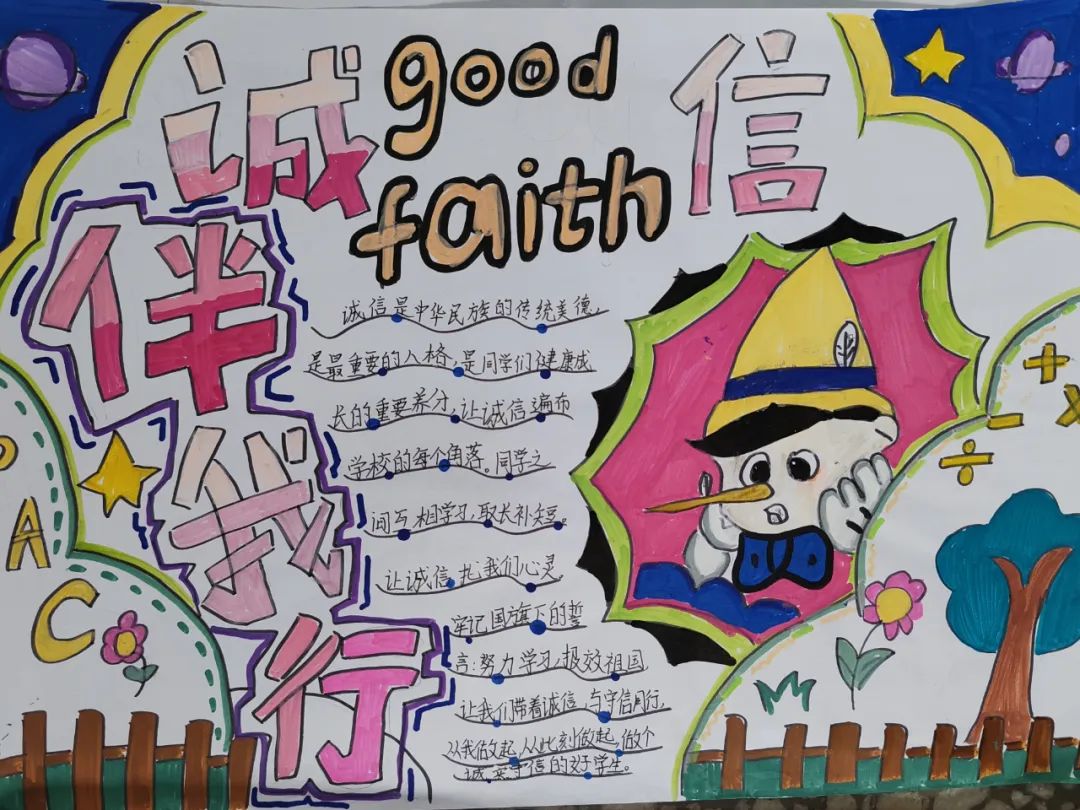 诚 good 信
faith
伴
我
行
诚信是中华民族的传统美德,
是最重要的人格,是同学们健康成
长的重要养分,让诚信遍布
学校的每个角落。同学之
间互相学习,取长补短。
让诚信 扎 我们心灵,
牢记国旗下的誓
言:努力学习,报效祖国
让我们带着诚信,与守信同行,
从我做起,从此刻做起,做个
诚实守信的好学生。
A
C
+
-
x
÷